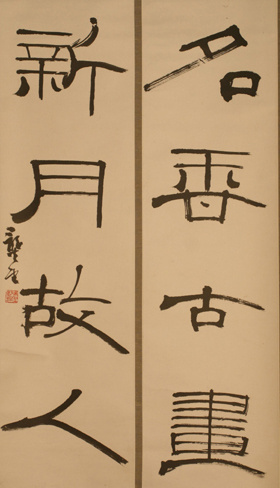 名香古畫
新月故人
龔望